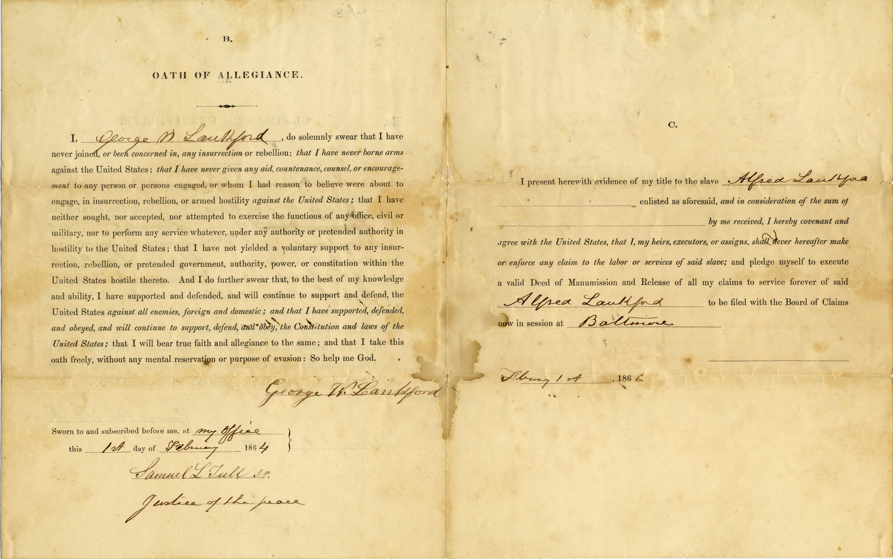 B.
OATH OF ALLEGIANCE.
I, George W Lankford, do solemnly swear that I have
never joined, or been concerned in, any insurrection or rebellion; that I have never borne arms
against the United States; that I have never given any aid, countenance, counsel, or encourage-
ment to any person or persons engaged, or whom I had reason to believe were about to
engage, in insurrection, rebellion, or armed hostility against the United States; that I have
neither sought, nor accepted, nor attempted to exercise the functions of any office, civil or
military, nor to perform any service whatever, under any authority or pretended authority in
hostility to the United States; that I have not yielded a voluntary support to any insur-
rection, rebellion, or pretended government, authority, power, or constitution within the
United States hostile thereto. And I do further swear that, to the best of my knowledge
and ability, I have supported and defended, and will continue to support and defend, the
United States against all enemies, foreign and domestic; and that I have supported, defended,
and obeyed, and will continue to support, defend, and obey, the Constitution and laws of the
United States; that I will bear true faith and allegiance to the same; and that I take this
oath freely, without any mental reservation or purpose of evasion: So help me God.
George W. Lankford
Sworn to and subscribed before me, at my office
this 1st day of February 1864
Samuel L Tull
Justice of the peace
C.
I present herewith evidence of my title to the slave Alfred Lankford
enlisted as aforesaid, and in consideration of the sum of
by me received, I hereby covenant and
agree with the United States, that I, my heirs, executors, or assigns, shall never hereafter make
or enforce any claim to the labor or services of said slave; and pledge myself to execute
a valid Deed of Manumission and Release of all my claims to service forever of said
Alfred Lankford to be filed with the Board of Claims
now in session at Baltimore
1st, 186